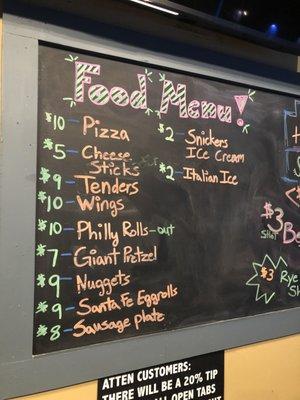 Food Menu!
$10 - Pizza
$5 - Cheese Sticks
$9 - Tenders
$10 - Wings
$10 - Philly Rolls - out
$7 - Giant Pretzel
$9 - Nuggets
$9 - Santa Fe Eggrolls
$8 - Sausage plate
$2 - Snickers
Ice Cream
$2 - Italian Ice
$3
Shot
$3 Rye
ATTEN CUSTOMERS:
THERE WILL BE A 20% TIP
ALL OPEN TABS